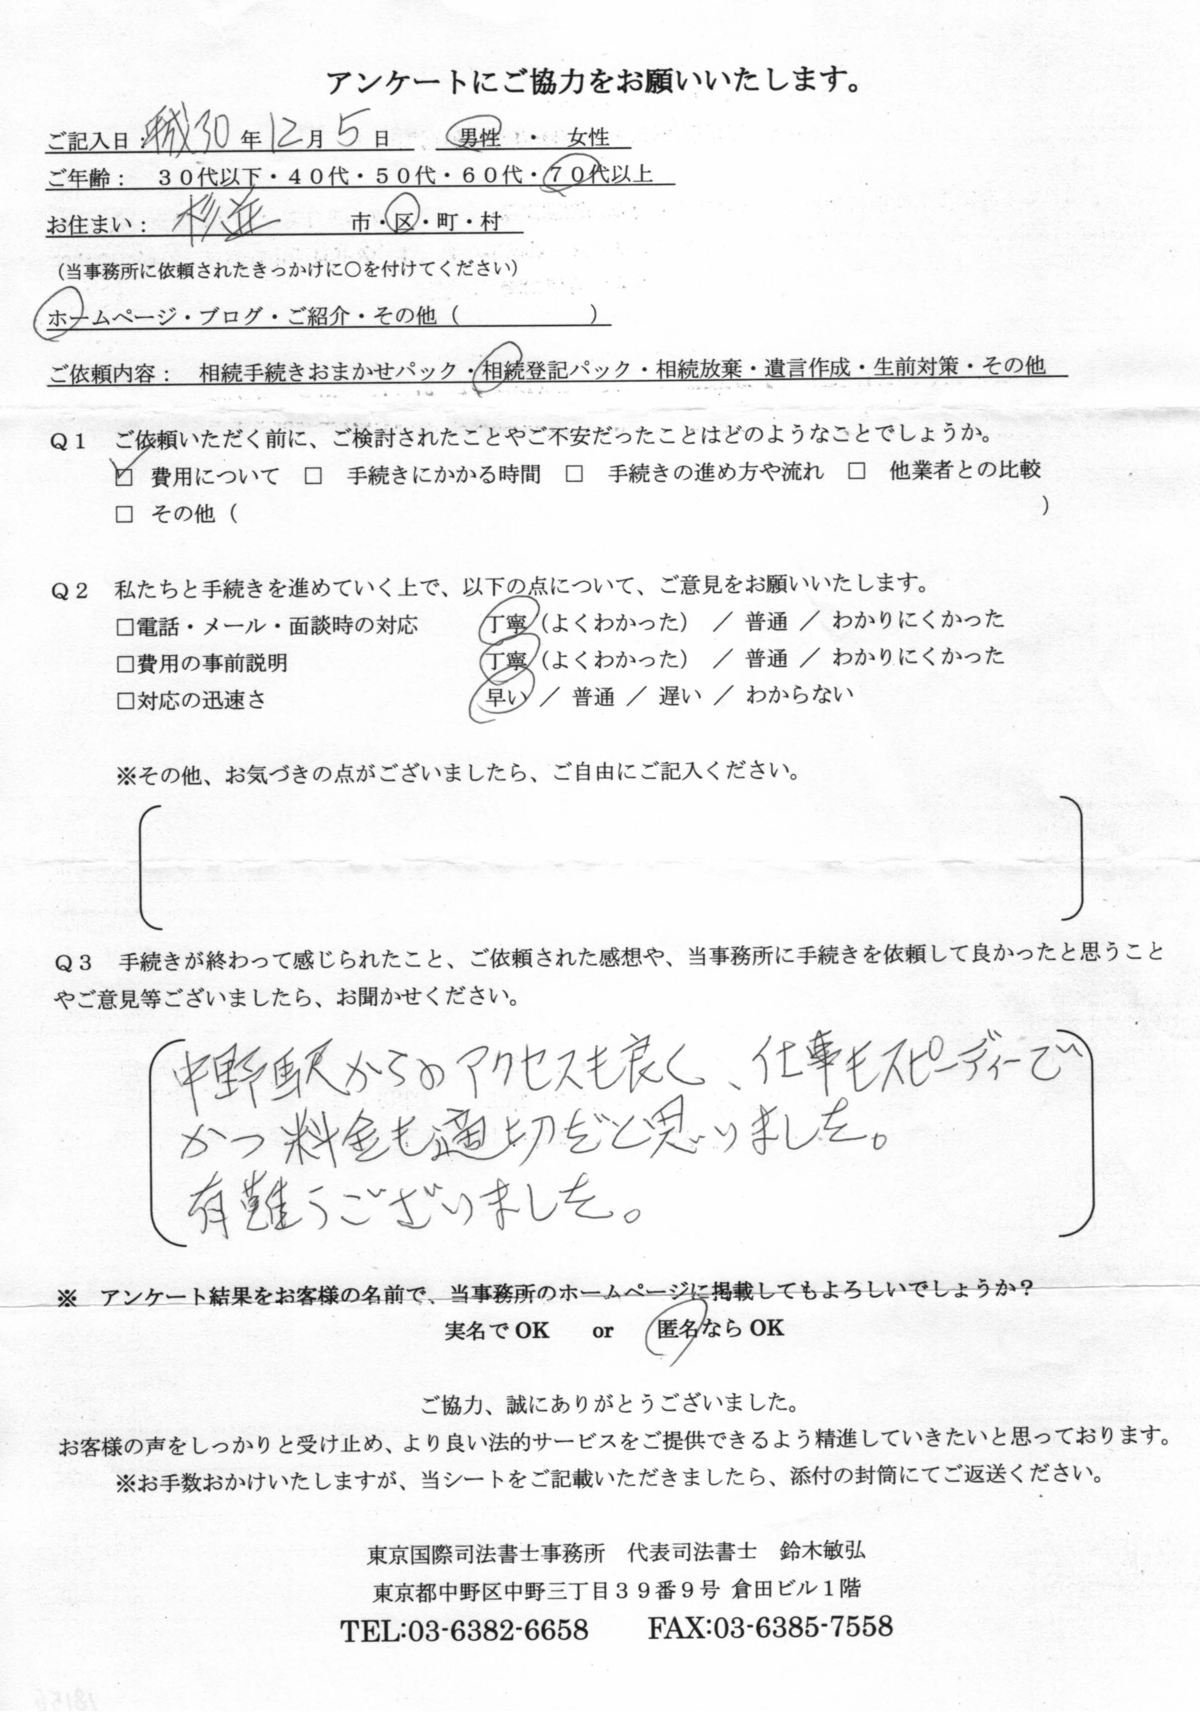 アンケートにご協力をお願いいたします。
ご記入日：平成30年12月5日　男性 ・ 女性
ご年齢：　３０代以下・４０代・５０代・６０代・７０代以上
お住まい：　杉並　市・区・町・村
（当事務所に依頼されたきっかけに○を付けてください）
ホームページ・ブログ・ご紹介・その他（　　　　　　）
ご依頼内容：　相続手続きおまかせパック・相続登記パック・相続放棄・遺言作成・生前対策・その他
Ｑ１　ご依頼いただく前に、ご検討されたことやご不安だったことはどのようなことでしょうか。
☑ 費用について　□ 手続きにかかる時間　□ 手続きの進め方や流れ　□ 他業者との比較
□ その他（　　　　　　）
Ｑ２　私たちと手続きを進めていく上で、以下の点について、ご意見をお願いいたします。
□電話・メール・面談時の対応　丁寧（よくわかった） ／ 普通 ／ わかりにくかった
□費用の事前説明　丁寧（よくわかった） ／ 普通 ／ わかりにくかった
□対応の迅速さ　早い ／ 普通 ／ 遅い ／ わからない
※その他、お気づきの点がございましたら、ご自由にご記入ください。
Ｑ３　手続きが終わって感じられたこと、ご依頼された感想や、当事務所に手続きを依頼して良かったと思うこと
やご意見等ございましたら、お聞かせください。
中野駅からのアクセスも良く、仕事もスピーディーで
かつ料金も適切だと思いました。
有難うございました。
※　アンケート結果をお客様の名前で、当事務所のホームページに掲載してもよろしいでしょうか？
実名でOK　or　匿名ならOK
ご協力、誠にありがとうございました。
お客様の声をしっかりと受け止め、より良い法的サービスをご提供できるよう精進していきたいと思っております。
※お手数おかけいたしますが、当シートをご記載いただきましたら、添付の封筒にてご返送ください。
東京国際司法書士事務所　代表司法書士　鈴木敏弘
東京都中野区中野三丁目３９番９号 倉田ビル１階
TEL:03-6382-6658　FAX:03-6385-7558